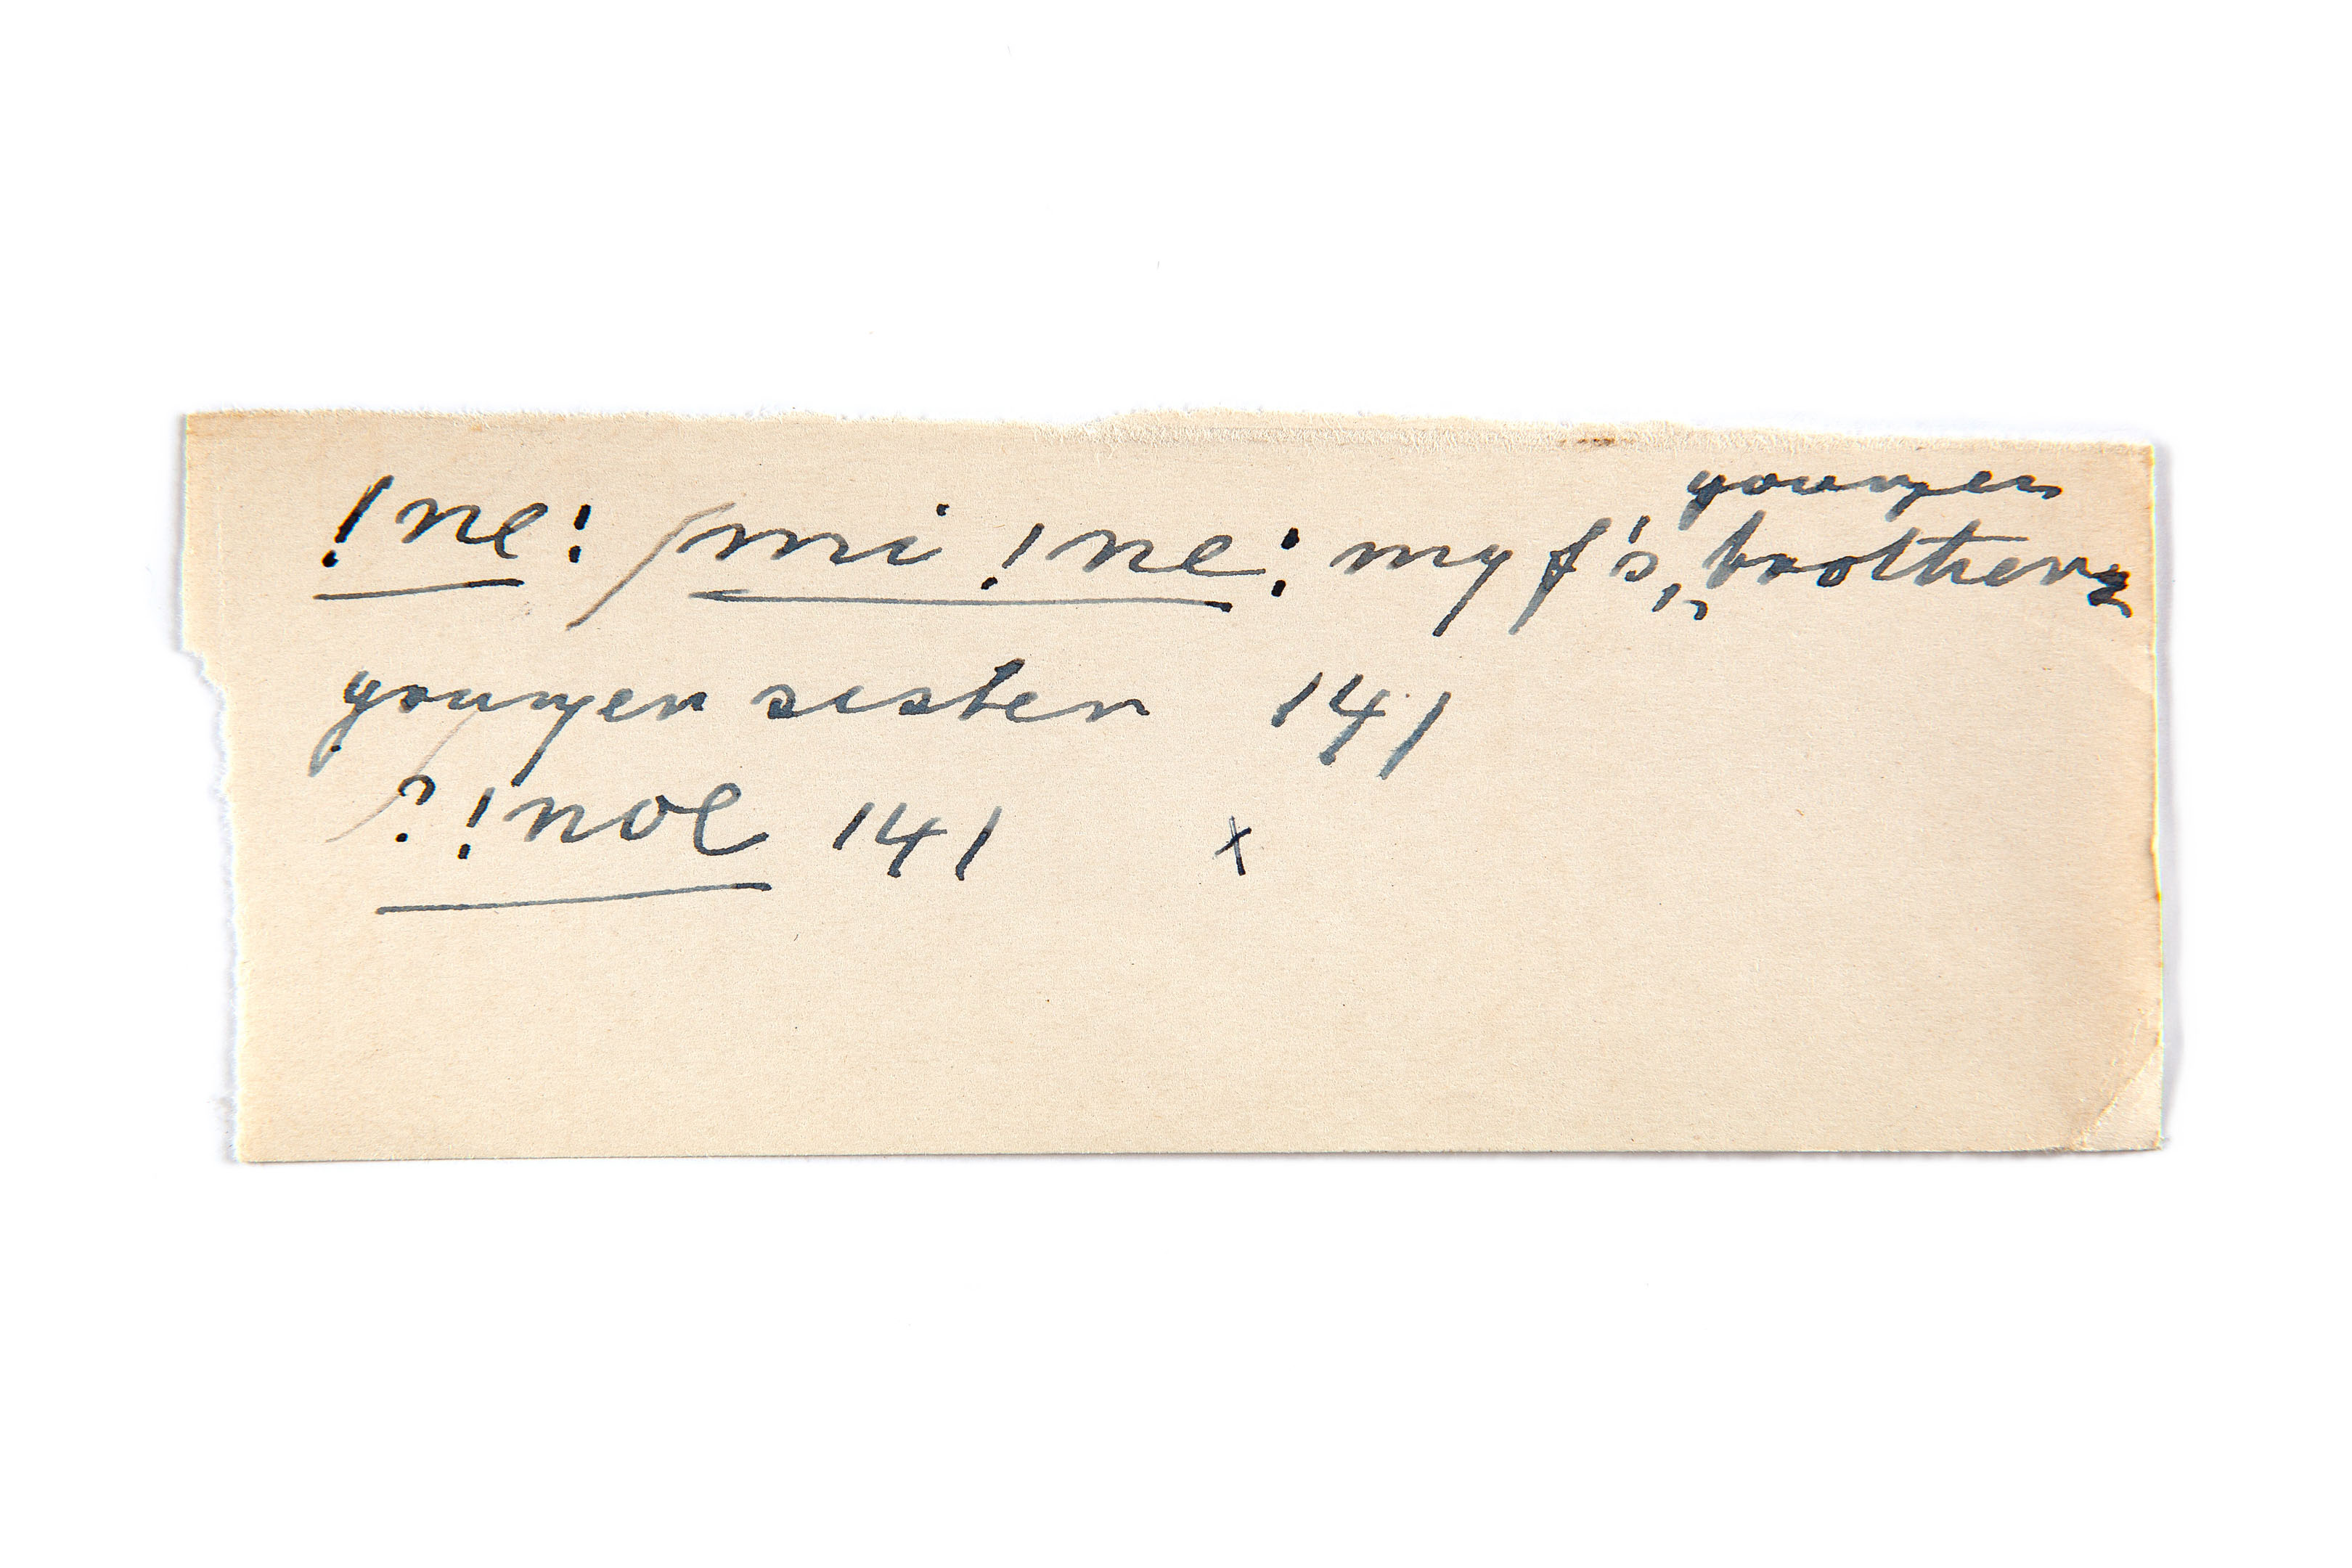 younger
¡ne: / mi ¡ne: my f's brother,
younger sister 141
¡¡noe 141 x